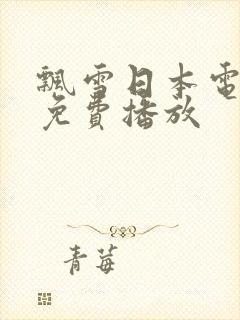 飘雪日本电
免費播放
青莓